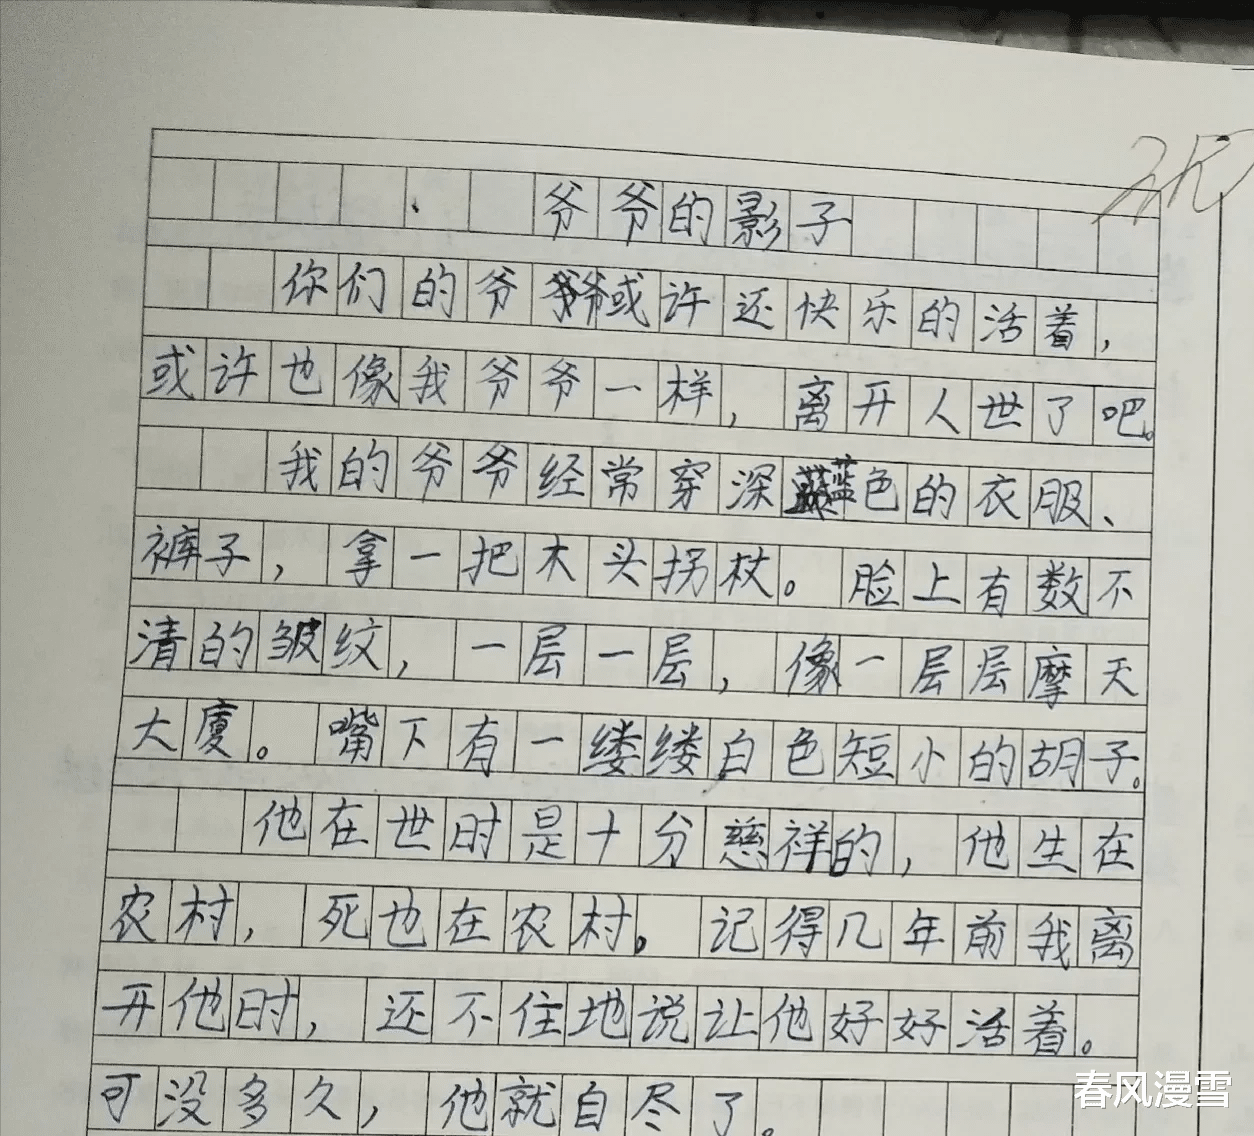 爷爷的影子
你们的爷爷或许还快乐的活着，
或许也像我爷爷一样，离开人世了吧。
我的爷爷经常穿深蓝色的衣服、
裤子，拿一把木头拐杖。脸上有数不
清的皱纹，一层一层，像一层层摩天
大厦。嘴下有一缕缕白色短小的胡子。
他在世时是十分慈祥的，他生在
农村，死也在农村。记得几年前我离
开他时，还不住地说让他好好活着。
可没多久，他就自尽了。
春风漫雪